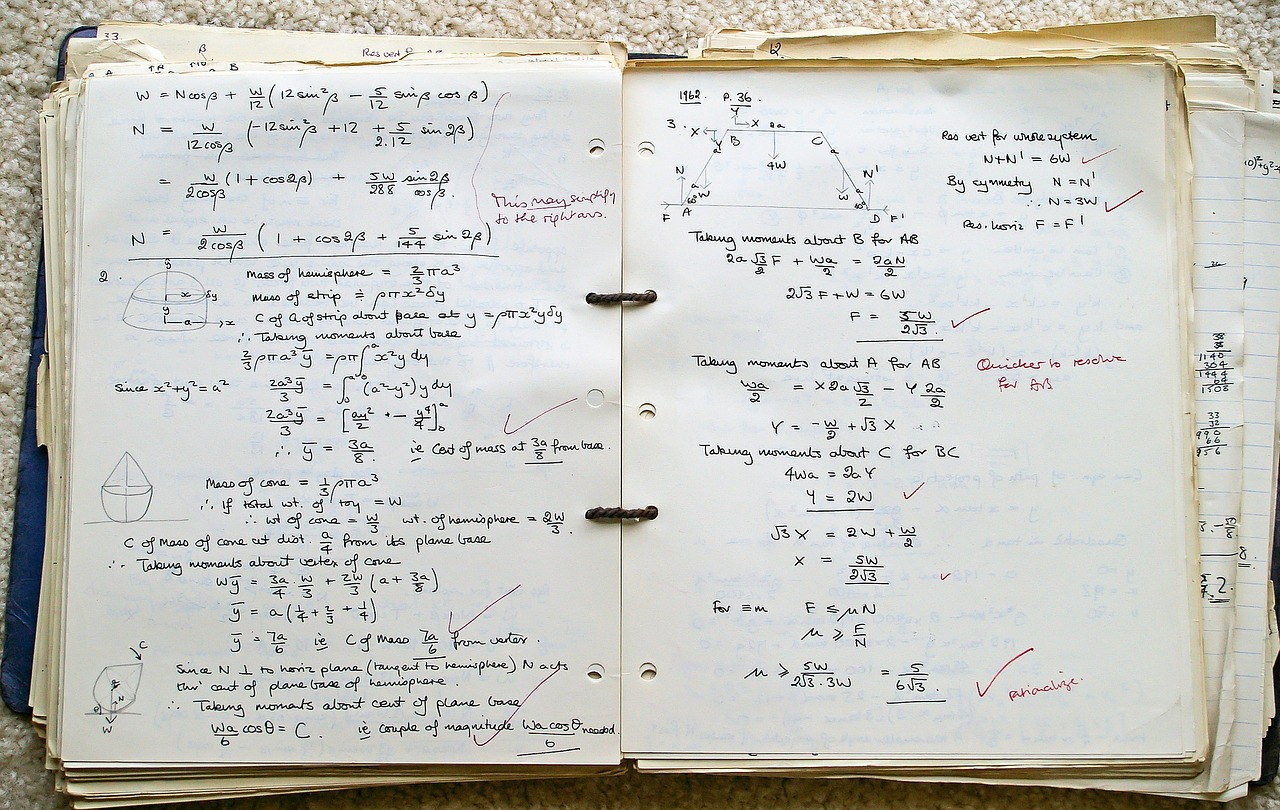 33.
β
Res vert
A B
W = N cos β + W/12 (12 sin²β − 5/12 sin β cos β)
N = W/12cosβ (−12 sin²β + 12 + 5/2.12 sin 2β)
= W/2cosβ (1 + cos 2β) + 5W/288 sin2β/cosβ.
This may simplify
to the right ans.
N = W/2cosβ (1 + cos 2β + 5/144 sin 2β)
2.
y
x δy
y
a x
Mass of hemisphere = 2/3 πa³
Mass of strip ≑ ρπx²δy
C of G of strip about base at y = ρπx²yδy
∴ Taking moments about base
2/3 ρπa³ȳ = ρπ∫₀ᵃ x²y dy
Since x²+y² = a² 2a³ȳ/3 = ∫₀ᵃ (a²−y²) y dy
2a³ȳ/3 = [ay²/2 − y⁴/4]₀ᵃ
∴ ȳ = 3a/8 ie Cent of mass at 3a/8 from base.
Mass of cone = 1/3 ρπa³
∴ If total wt. of toy = W
∴ wt of cone = W/3 wt. of hemisphere = 2W/3.
C of Mass of cone at dist. a/4 from its plane base
∴ Taking moments about vertex of cone
Wȳ = 3a/4 · W/3 + 2W/3 (a + 3a/8)
ȳ = a(1/4 + 2/3 + 1/4)
ȳ = 7a/6 ie C of Mass 7a/6 from vertex.
C
N
θ
W
Since N ⊥ to horiz plane (tangent to hemisphere) N acts
thro' cent of plane base of hemisphere.
∴ Taking moments about cent of plane base
Wa/6 cosθ = C. ie couple of magnitude Wa cosθ/6 needed.
12.
1962. P. 36.
3.
Y
X X 2a
B C
Y
a a
4W
N N'
a a
W W
60° 60°
F A D F'
Res vert for whole system
N+N' = 6W
By symmetry N = N'
∴ N = 3W
Res. horiz F = F'
Taking moments about B for AB
2a √3/2 F + Wa/2 = 2aN/2
2√3 F + W = 6W
F = 5W/2√3.
Taking moments about A for AB
Quicker to resolve
for AB
Wa/2 = X 2a √3/2 − Y 2a/2
Y = −W/2 + √3 X
Taking moments about C for BC
4Wa = 2aY
Y = 2W
√3 X = 2W + W/2
X = 5W/2√3
For ≡m F ≤ μN
μ ≥ F/N
μ ≥ 5W/2√3.3W = 5/6√3.
rationalize.
38
38
1140
304
1444
64
1508
33
32
990
66
956